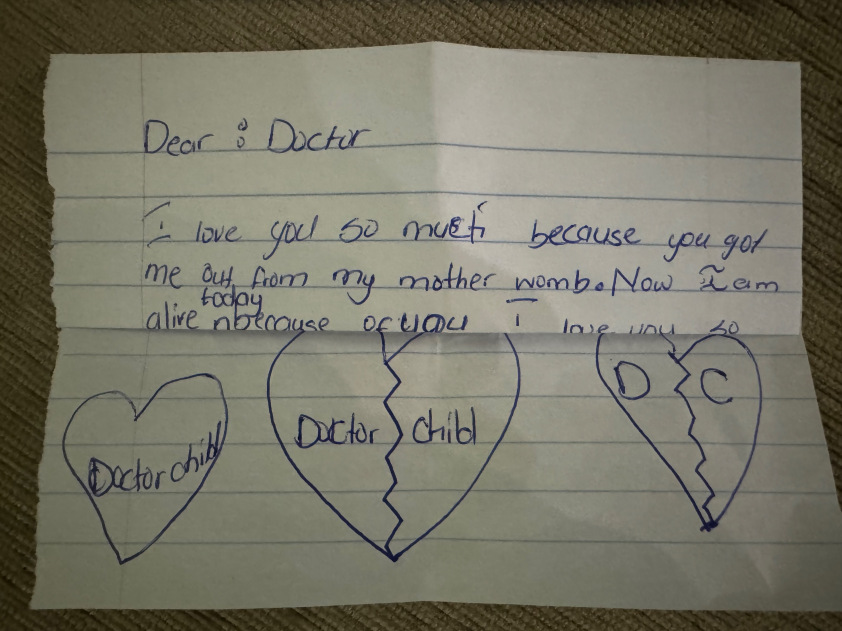 Dear : Doctor
I love you so much because you got
me out from my mother womb. Now I am
today
alive because of you I love you so
Doctor child
Doctor child
D C